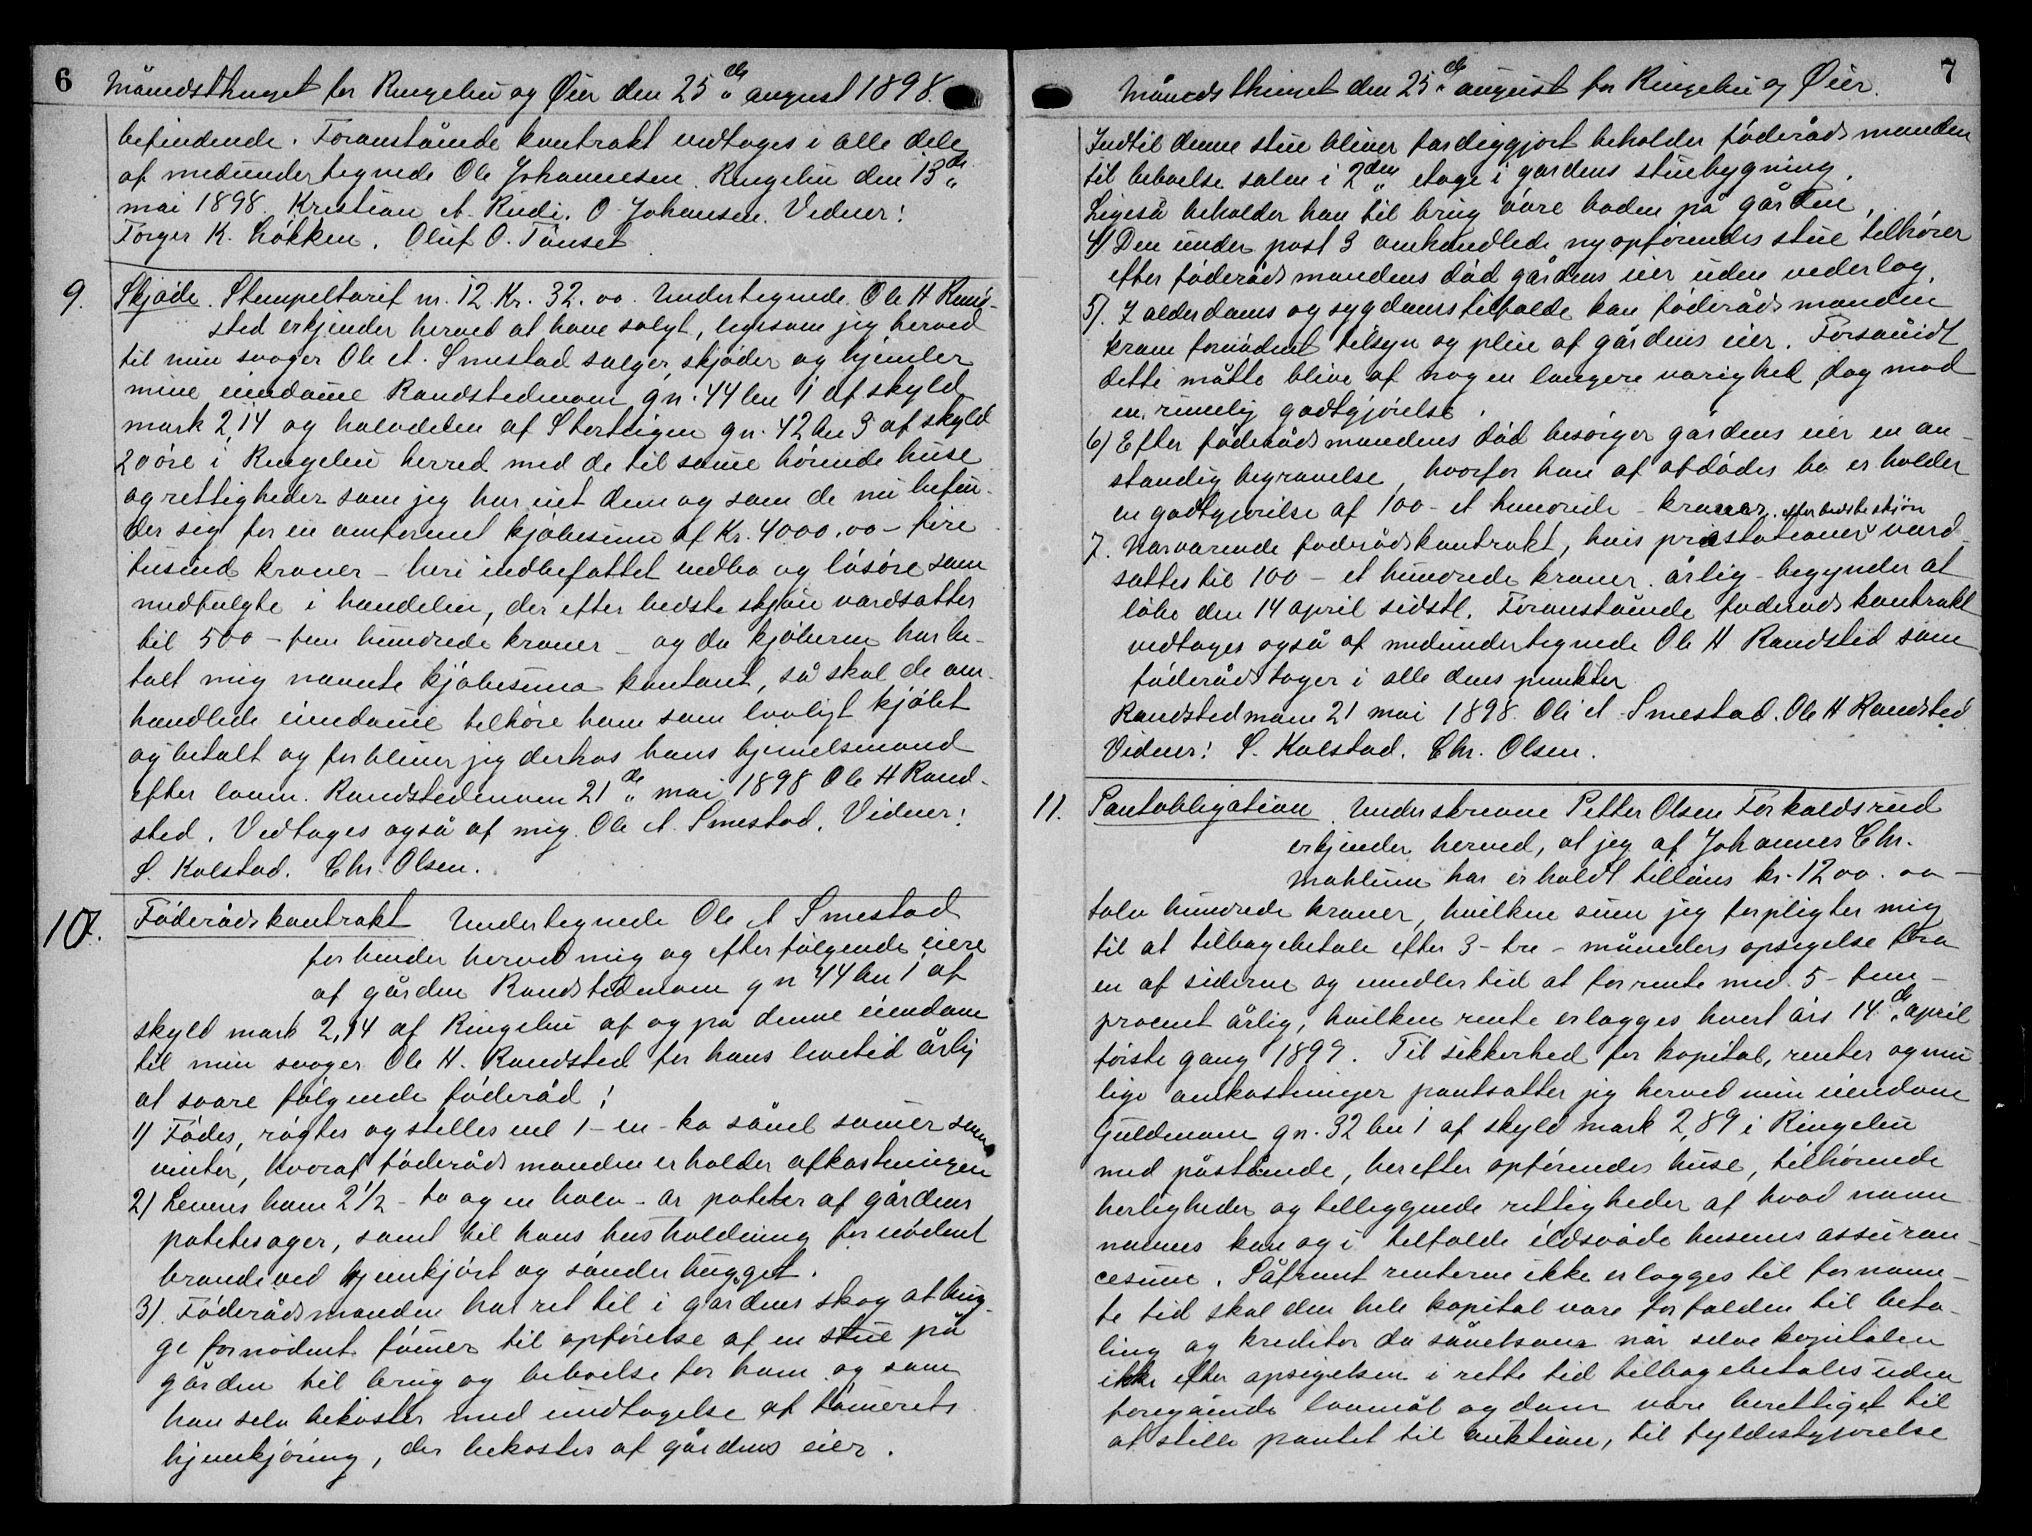 6 Månedsthinget for Ringebu og Øier den 25de august 1898.
befindende. Foranstående kontrakt vedtages i alle dele
af medundertegnede Ole Johannesen. Ringebu den 13de
mai 1898. Kristian A. Rudi. O. Johansen. Vidner:
Torger K. Løkken. Oluf O. Tånset
9. Skjøde. Stempeltarif nr. 12. Kr. 32.00. Undertegnede Ole H Rand-
sted erkjender herved at have solgt, ligesom jeg herved
til min svoger Ole A. Smestad sælger, skjøder og hjemler
mine eiendome Randstedmoen gn. 44 bn 1 af skyld
mark 2,14 og halvdelen af Storteigen gn. 42 bn 3 af skyld
20 øre i Ringebu herred med de til samme hørende huse
og rettigheder som jeg har eiet dem og som de nu befin-
der sig for en omforenet kjøbesum af Kr. 4000.00 – fire
tusind kroner – heri indbefattet indbo og løsøre som
medfulgte i handelen, der efter bedste skjøn værdsættes
til 500 – fem hundrede kroner – og da kjøberen har be-
talt mig nævnte kjøbesum kontant, så skal de om-
handlede eiendome tilhøre ham som lovligt kjøbt
og betalt og forbliver jeg derhos hans hjemmelsmand
efter loven. Randstedmoen 21de mai 1898 Ole H Rand-
sted. Vedtages også af mig. Ole A. Smestad. Vidner:
S. Kolstad. Chr. Olsen.
10. Føderådskontrakt Undertegnede Ole A Smestad
forbinder herved mig og efterfølgende eiere
af gården Randstedmoen gn 44 bn 1 af
skyld mark 2,14 af Ringebu af og på denne eiendom
til min svoger Ole H. Randsted for hans levetid årlig
at svare følgende føderåd:
1) Fødes, røgtes og stelles vel 1 – en – ko såvel sommer som
vinter, hvoraf føderådsmanden erholder afkastningen
2) Levnes ham 2½ – to og en halv – ar poteter af gårdens
potetesager, samt til hans husholdning fornødent
brændeved hjemkjørt og sønderhugget.
3). Føderådsmanden har ret til i gårdens skog at hug-
ge fornødent tømmer til opførelse af en stue på
gården til brug og beboelse for ham og som
han selv bekoster med undtagelse af tømmerets
hjemkjøring, der bekostes af gårdens eier.
Månedsthinget den 25de august for Ringebu og Øier. 7
Indtil denne stue bliver færdiggjort beholder føderådsmanden
til beboelse salen i 2den etage i gårdens stuebygning.
Ligeså beholder han til brug øvre boden på gården.
4) Den under post 3 omhandlede nyopførendes stue tilhører
efter føderådsmandens død gårdens eier uden vederlag.
5). I alderdoms og sygdomstilfælde kan føderådsmanden
kræve fornødent tilsyn og pleie af gårdens eier. Forsåvidt
dette måtte blive af nogen længere varighed, dog mod
en rimelig godtgjørelse.
6) Efter føderådsmandens død besørger gårdens eier en an-
stændig begravelse, hvorfor han af afdødes bo erholder
en godtgjørelse af 100 – et hundrede – kroner. efter bedste skjøn
7. Nærværende føderådskontrakt, hvis præstationer værd-
sættes til 100 – et hundrede kroner årlig – begynder at
løbe den 14 april sidstl. Foranstående føderådskontrakt
vedtages også af medundertegnede Ole H Randsted som
føderådstager i alle dens punkter
Randstedmoen 21 mai 1898. Ole A Smestad. Ole H Randsted
Vidner: S. Kolstad. Chr. Olsen.
11. Pantobligation. Underskrevne Petter Olsen Forkaldsrud
erkjender herved, at jeg af Johannes Chr.
Mæhlum har erholdt tillåns kr. 1200.00 –
tolv hundrede kroner, hvilken sum jeg forpligter mig
til at tilbagebetale efter 3 – tre – måneders opsigelse fra
en af siderne og imidlertid at forrente med 5 – fem –
procent årlig, hvilken rente erlægges hvert års 14de april
første gang 1899. Til sikkerhed for kapital, renter og mu-
lige omkostninger pantsætter jeg herved min eiendom
Guldmoen gn. 32 bn 1 af skyld mark 2,89 i Ringebu
med påstående, herefter opførendes huse, tilhørende
herligheder og tilleggende rettigheder af hvad navn
nævnes kan og i tilfælde ildsvåde husenes assuran-
cesum. Såfremt renterne ikke erlægges til fornævn-
te tid skal den hele kapital være forfalden til beta-
ling og kreditor da såvelsom når selve kapitalen
ikke efter opsigelsen i rette tid tilbagebetales uden
foregående lovmål og dom være berettiget til
at stille pantet til auktion, til fyldestgjørelse